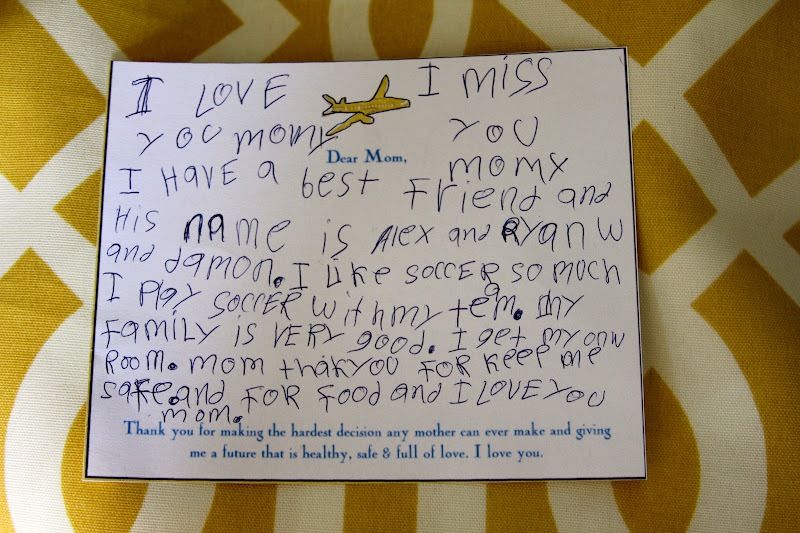 I LOVE I MISS
YOU MOMY YOU
Dear Mom,
MOMY
I HAVE A best Friend and
His name is Alex and Ryan W
and damon. I Like SOCCER so much
I Play SOCCER with my team. my
FAMILY is VERY good. I get my onw
Room. mom thakyou FOR KEEP me
safe. and FOR Food and I LOVE YOU
mom.
Thank you for making the hardest decision any mother can ever make and giving
me a future that is healthy, safe & full of love. I love you.